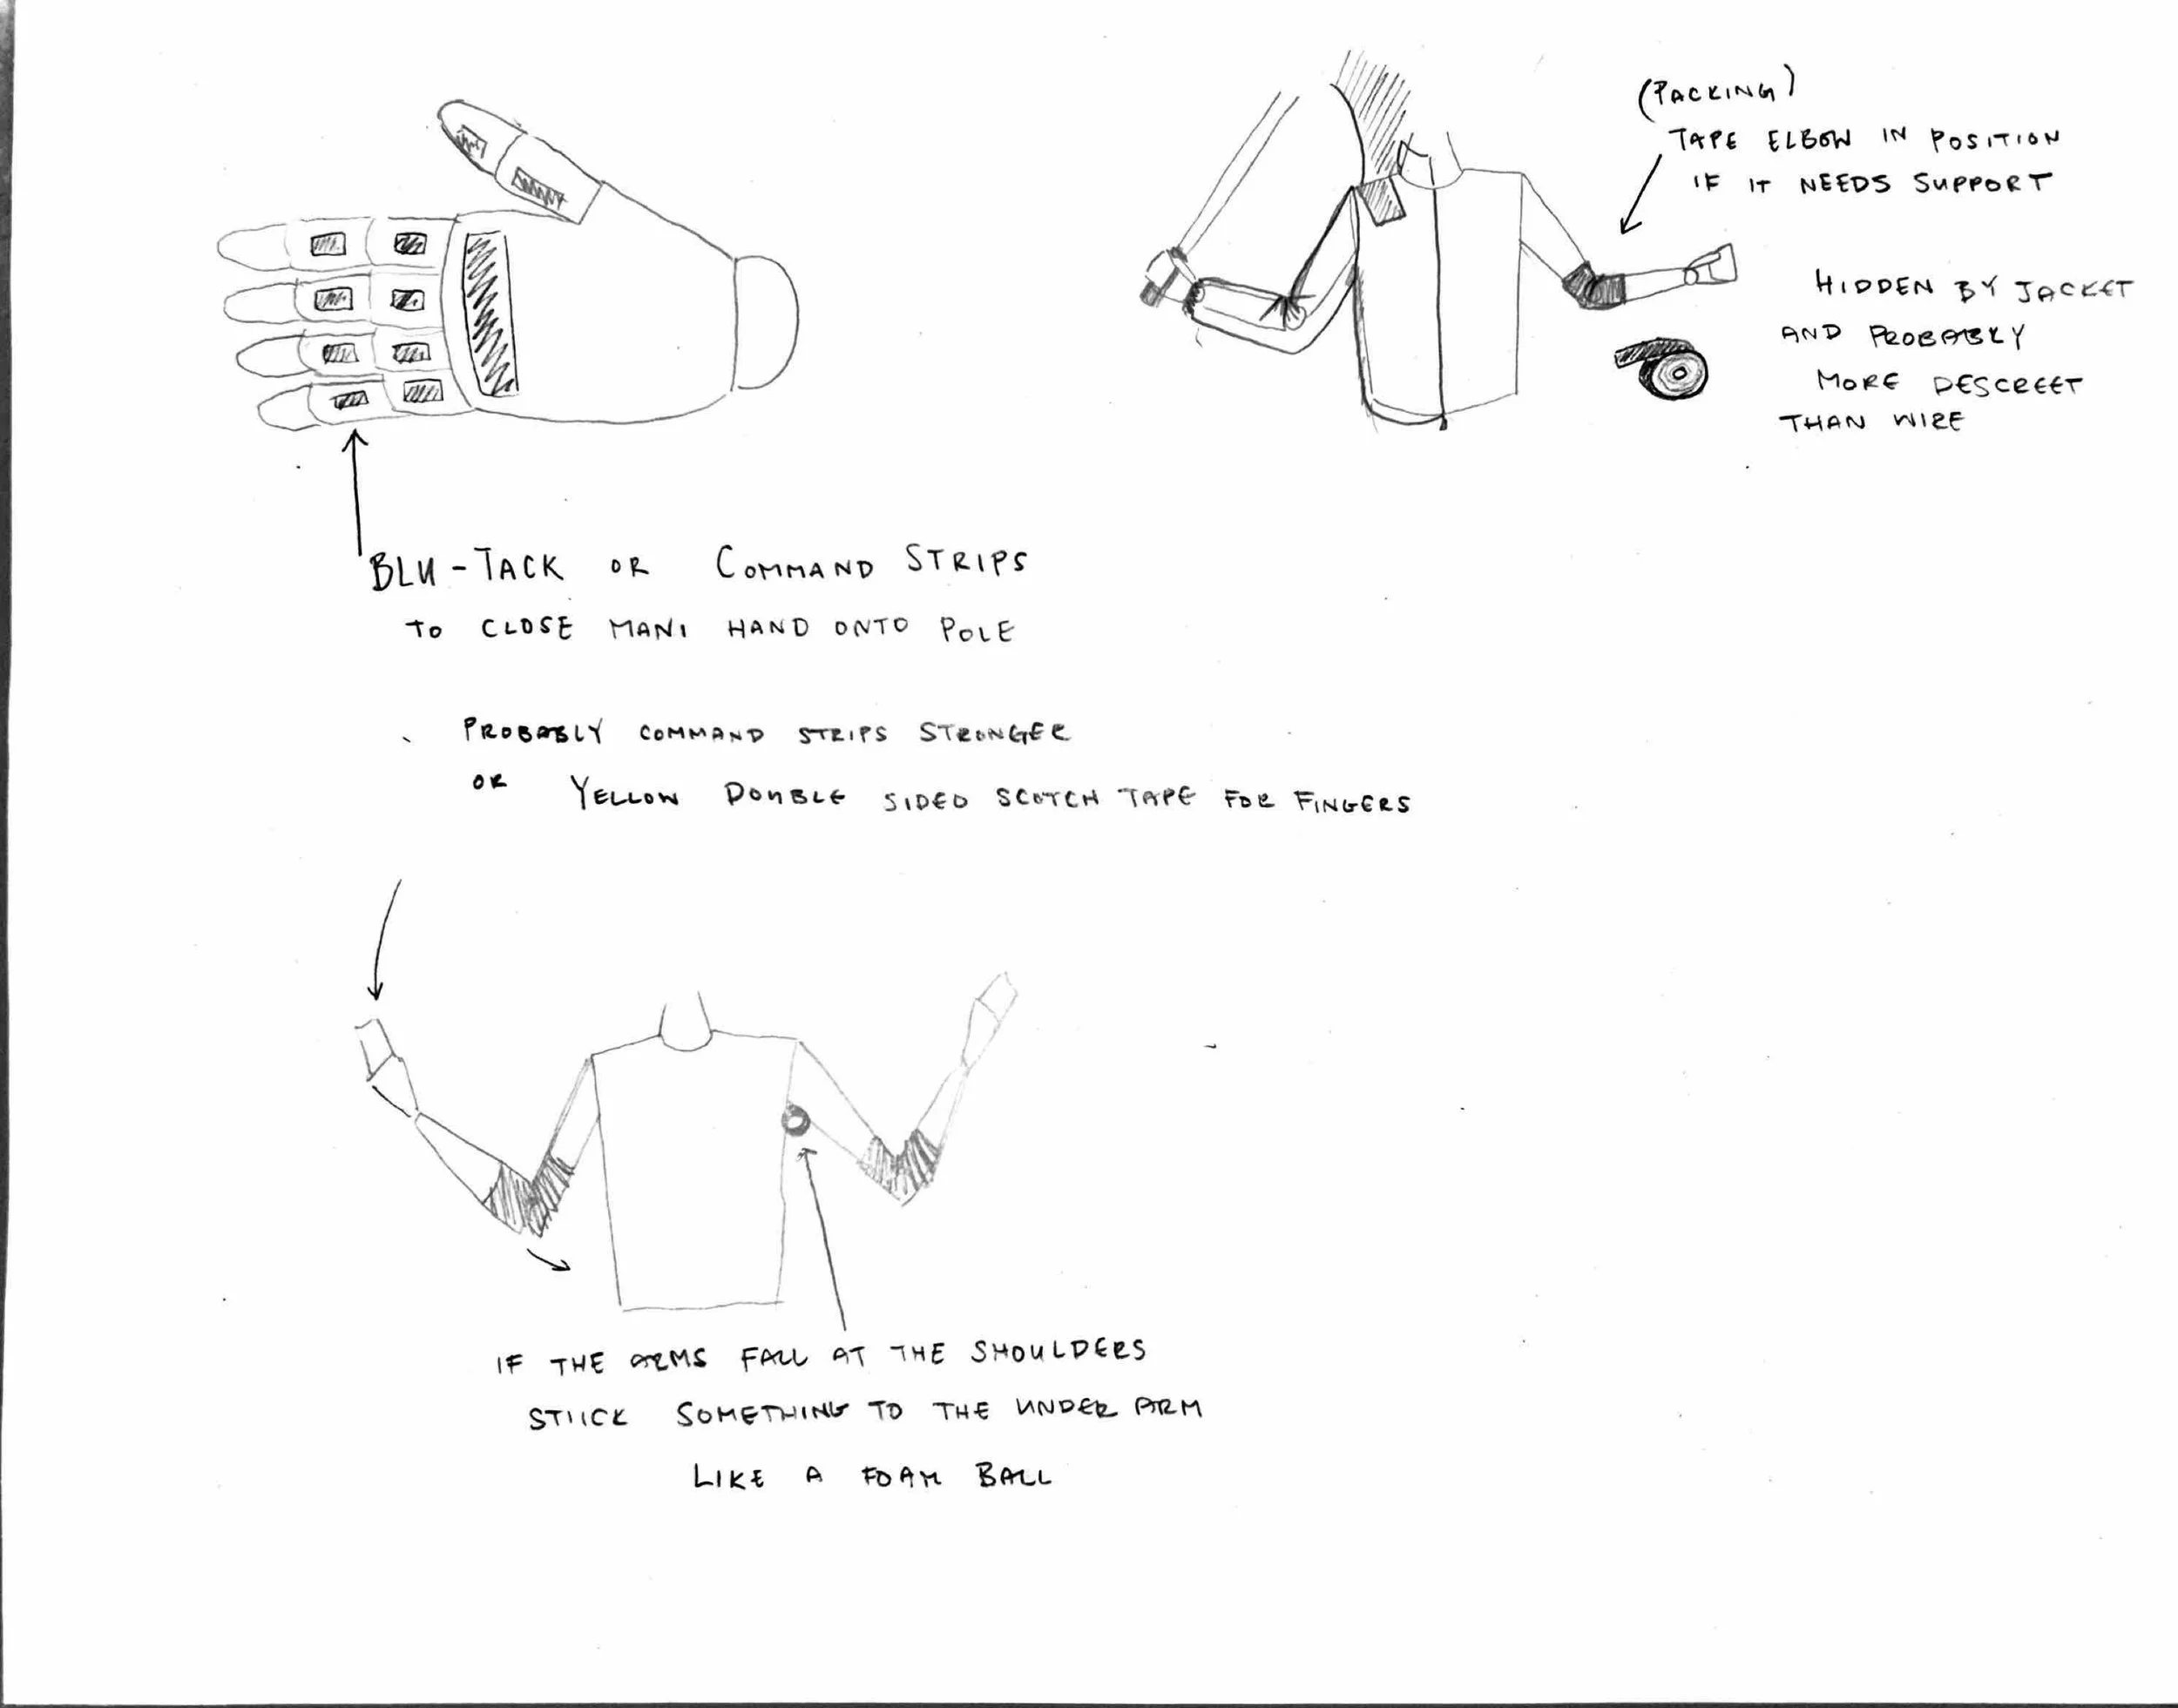 (PACKING)
TAPE ELBOW IN POSITION
IF IT NEEDS SUPPORT
HIDDEN BY JACKET
AND PROBABLY
MORE DESCREET
THAN WIRE
BLU-TACK OR COMMAND STRIPS
TO CLOSE MANI HAND ONTO POLE
PROBABLY COMMAND STRIPS STRONGER
OR YELLOW DOUBLE SIDED SCOTCH TAPE FOR FINGERS
IF THE ARMS FALL AT THE SHOULDERS
STIICK SOMETHING TO THE UNDER ARM
LIKE A FOAM BALL